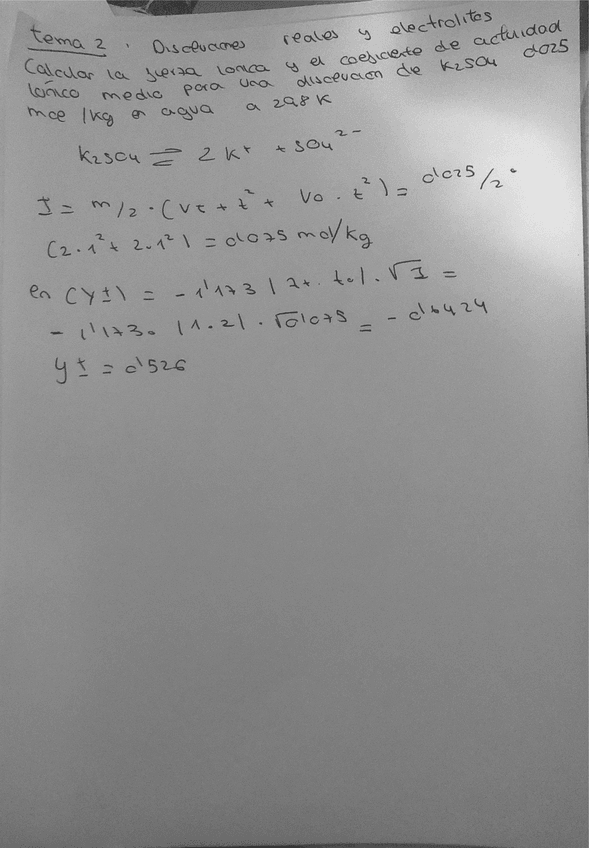 tema 2. Disoluciones reales y electrolitos
Calcular la fuerza ionica y el coeficiente de actividad
ionico medio para una disolucion de K2SO4 0'025
mol/kg en agua a 298K
K2SO4 ⇌ 2K+ + SO4 2-
I = m/2 · (V+ + z² + V0 · z²) = 0'025/2 ·
(2·1² + 2·1²) = 0'075 mol/kg
en (γ±) = -1'173 | z+ · z-| · √I =
-1'173 · |1·2| · √0'075 = -0'6424
γ± = 0'526